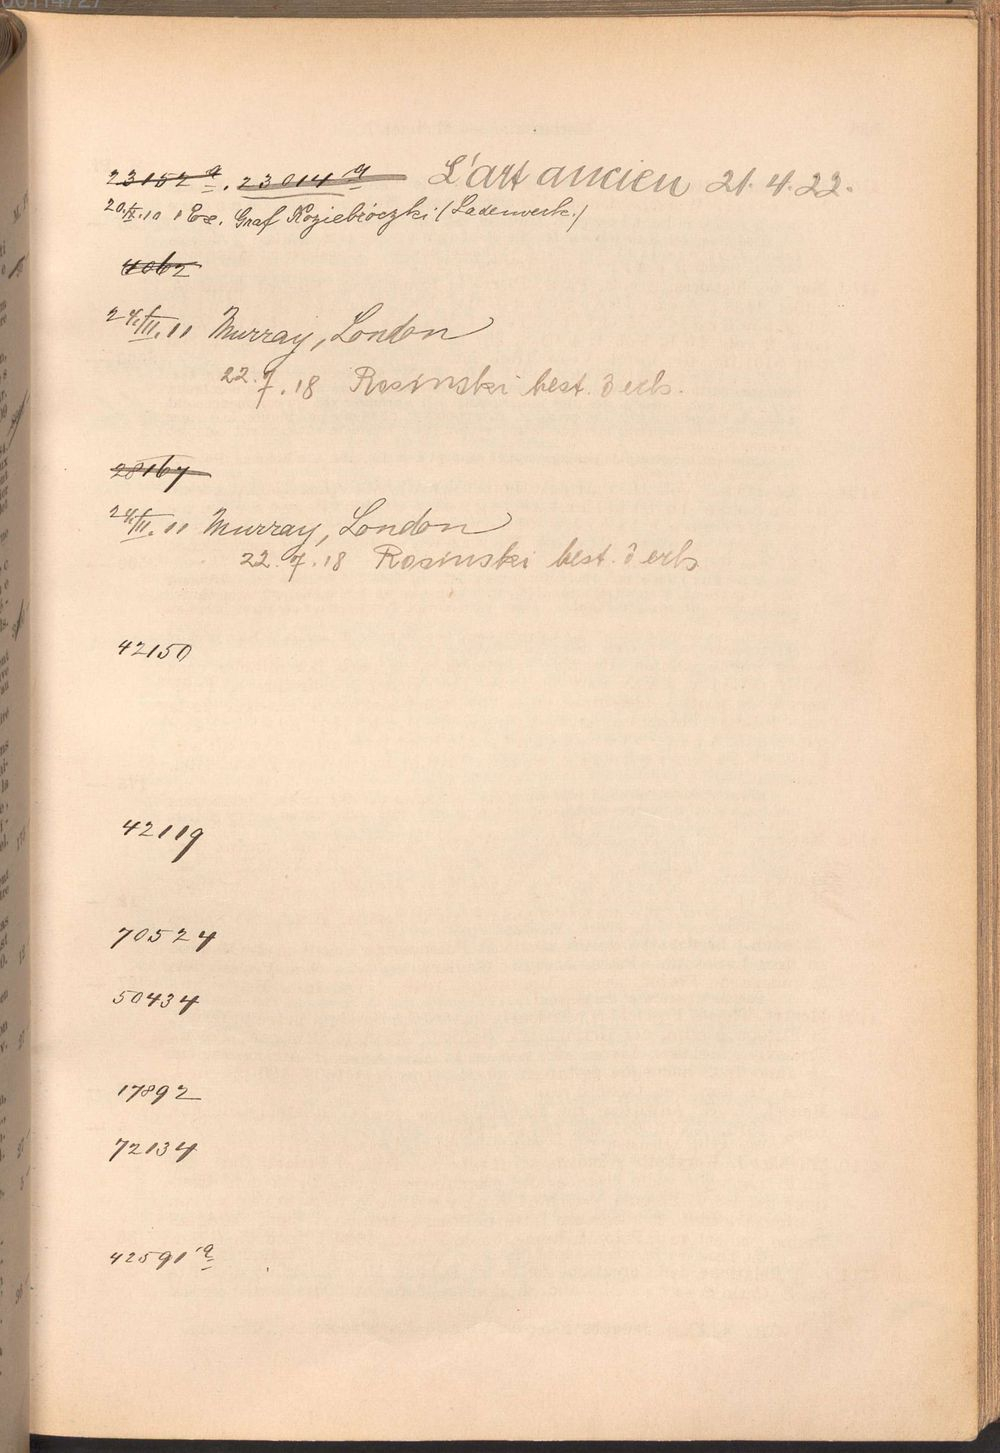 23152 a. 23014 a L'art ancien 21.4.22.
20.IX.10 1 Ex. Graf Koziebrodzki (Ladenverk.)
4062
24./II.11 Murray, London
22.7.18 Rosinski best. erb.
28167
24/II.11 Murray, London
22.7.18 Rosinski best. erb
42150
42119
70524
50434
17892
72134
42591 a